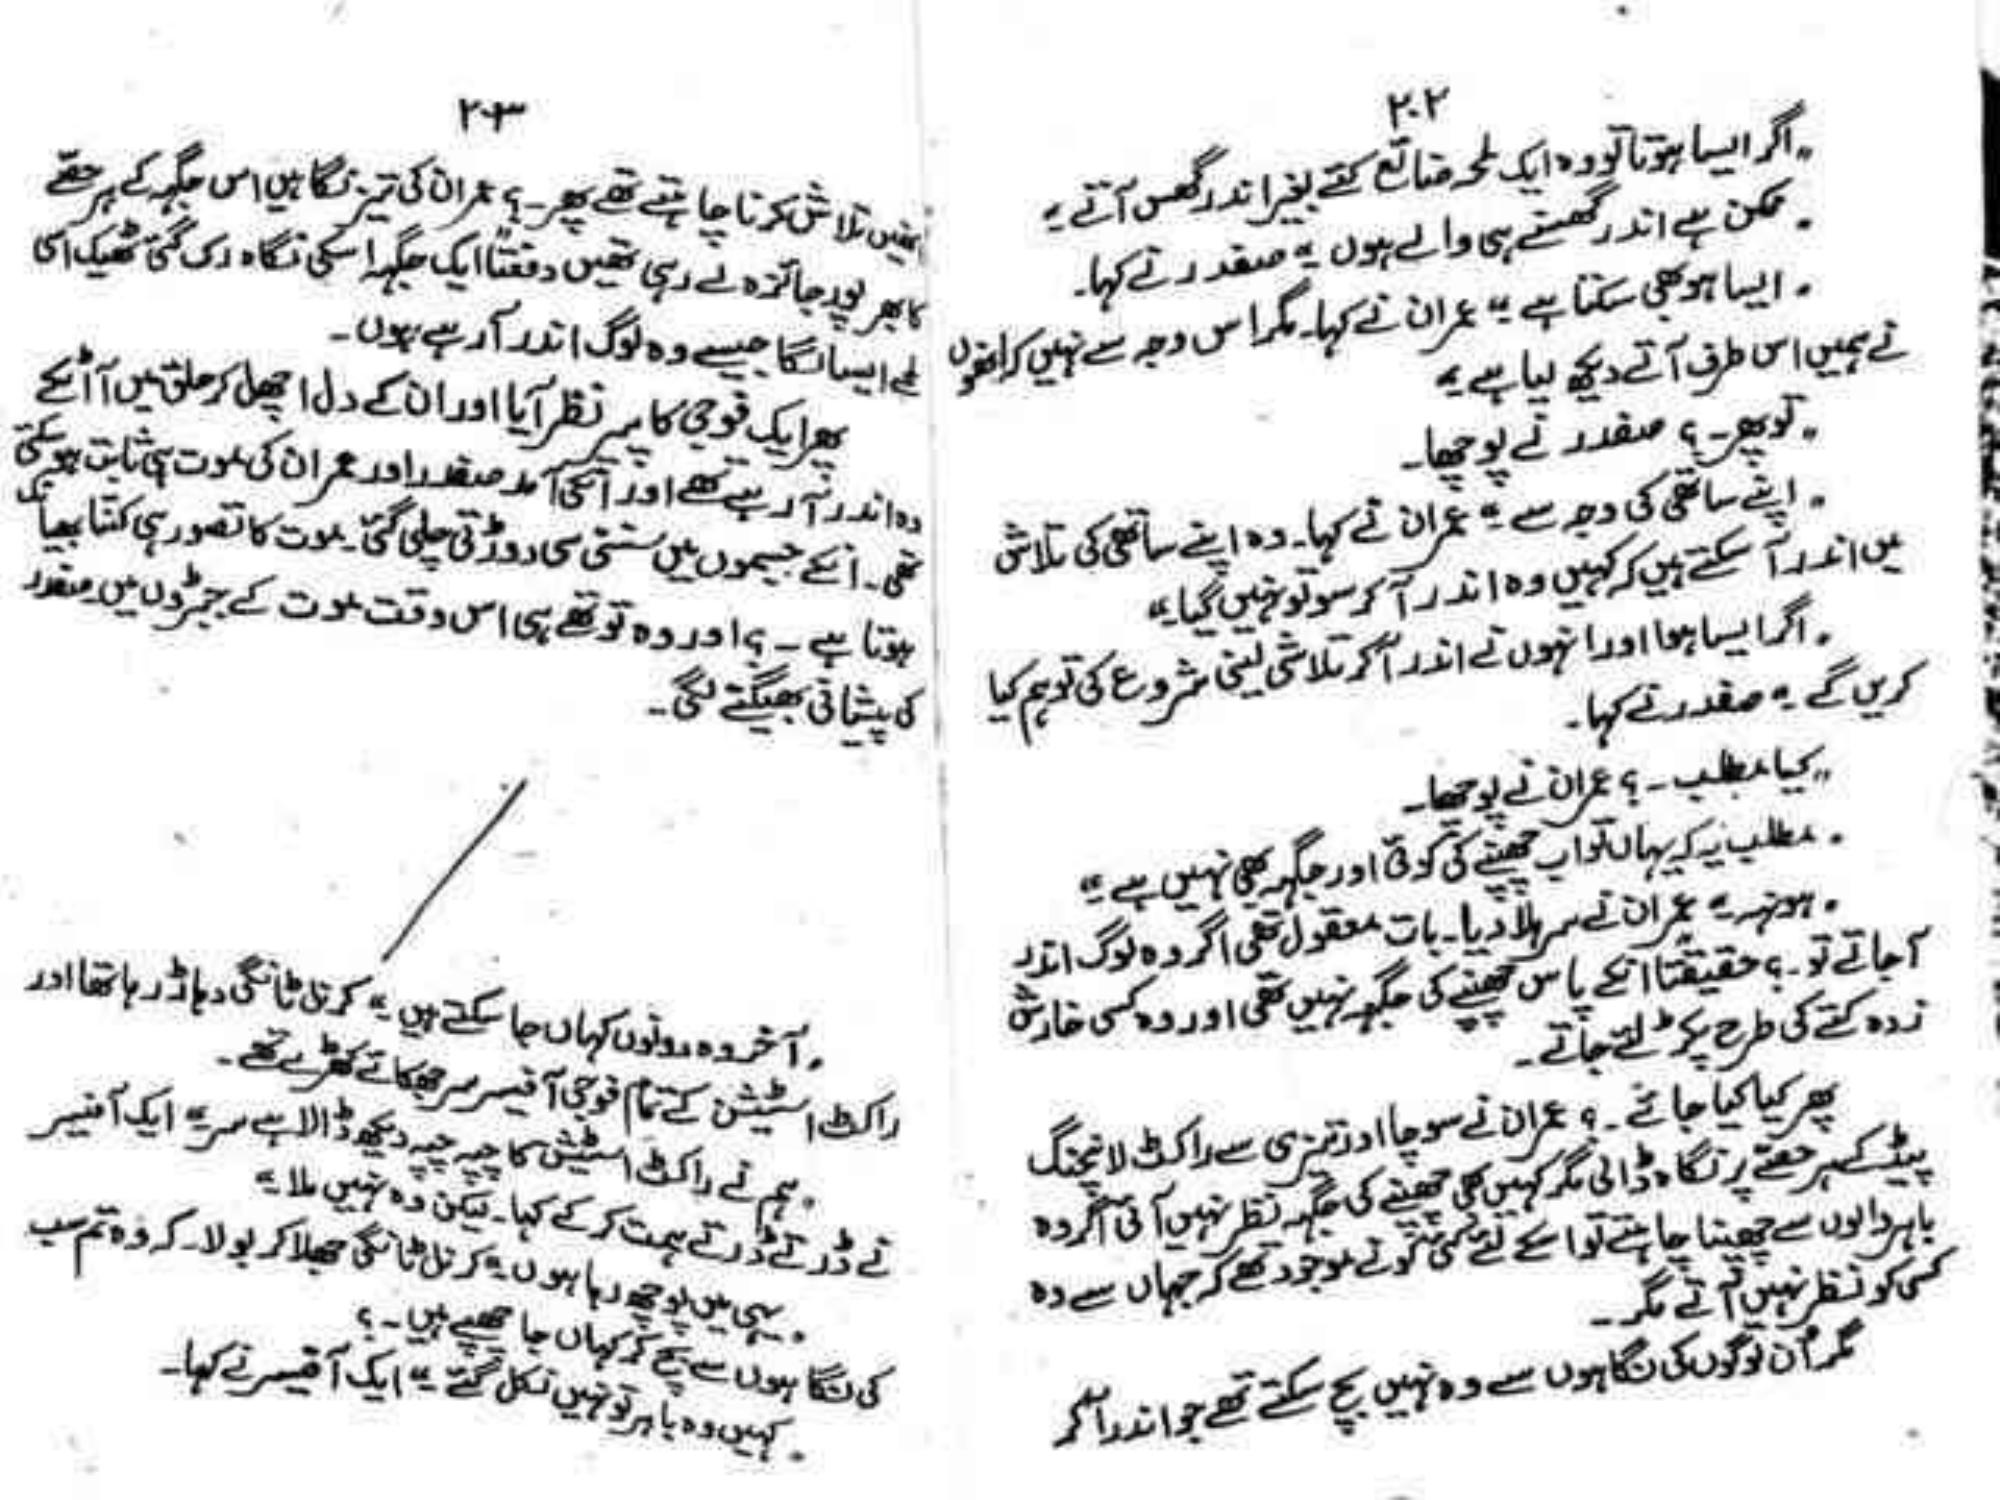 ۲۰۲
"اگر ایسا ہوتا تو وہ ایک لمحہ ضائع کئے بغیر اندر گھس آتے"
"ممکن ہے اندر گھسنے ہی والے ہوں" صفدر نے کہا۔
"ایسا ہو بھی سکتا ہے" عمران نے کہا۔ مگر اس وجہ سے نہیں کہ انھوں
نے ہمیں اس طرف آتے دیکھ لیا ہے"
"تو پھر۔؟ صفدر نے پوچھا۔
"اپنے ساتھی کی وجہ سے" عمران نے کہا۔ وہ اپنے ساتھی کی تلاش
میں اندر آ سکتے ہیں کہ کہیں وہ اندر آ کر سو تو نہیں گیا"
"اگر ایسا ہوا اور انہوں نے اندر آ کر تلاشی لینی شروع کی تو ہم کیا
کریں گے" صفدر نے کہا۔
"کیا مطلب۔؟ عمران نے پوچھا۔
"مطلب یہ کہ یہاں تو اب چھپنے کی کوئی اور جگہ بھی نہیں ہے"
"ہونہہ" عمران نے سر ہلا دیا۔ بات معقول تھی اگر وہ لوگ اندر
آجاتے تو۔؟ حقیقتاً انکے پاس چھپنے کی جگہ نہیں تھی اور وہ کسی خارش
زدہ کتے کی طرح پکڑ لئے جاتے۔
پھر کیا کیا جائے۔؟ عمران نے سوچا اور تیزی سے راکٹ لانچنگ
پیڈ کے ہر حصے پر نگاہ ڈالی مگر کہیں بھی چھپنے کی جگہ نظر نہیں آئی اگر وہ
باہر والوں سے چھپنا چاہتے تو اسکے لئے کئی کونے موجود تھے کہ جہاں سے وہ
کسی کو نظر نہیں آتے مگر۔
مگر اُن لوگوں کی نگاہوں سے وہ نہیں بچ سکتے تھے جو اندر آ کر
۲۰۳
انھیں تلاش کرنا چاہتے تھے پھر۔؟ عمران کی تیز نگاہیں اس جگہ کے ہر حصے
کا بھرپور جائزہ لے رہی تھیں دفعتاً ایک جگہ اسکی نگاہ رک گئی ٹھیک اسی
لمحے ایسا لگا جیسے وہ لوگ اندر آ رہے ہوں۔
پھر ایک فوجی کا پیر نظر آیا اور ان کے دل اچھل کر حلق میں آ اٹکے
وہ اندر آ رہے تھے اور انکی آمد صفدر اور عمران کی موت ہی ثابت ہو سکتی
تھی۔ انکے جسموں میں سنسنی سی دوڑتی چلی گئی۔ موت کا تصور ہی کتنا بھیانک
ہوتا ہے۔؟ اور وہ تو تھے ہی اس وقت موت کے جبڑوں میں صفدر
کی پیشانی بھیگنے لگی۔
"آخر وہ دونوں کہاں جا سکتے ہیں" کرنل ٹانگی دہاڑ رہا تھا اور
راکٹ اسٹیشن کے تمام فوجی آفیسر سر جھکائے کھڑے تھے۔
"ہم نے راکٹ اسٹیشن کا چپہ چپہ دیکھ ڈالا ہے سر" ایک آفیسر
نے ڈرتے ڈرتے ہمت کر کے کہا۔ لیکن وہ نہیں ملا"
"یہی میں پوچھ رہا ہوں" کرنل ٹانگی جھلا کر بولا۔ کہ وہ تم سب
کی نگاہوں سے بچ کر کہاں جا چھپے ہیں۔؟
"کہیں وہ باہر تو نہیں نکل گئے" ایک آفیسر نے کہا۔